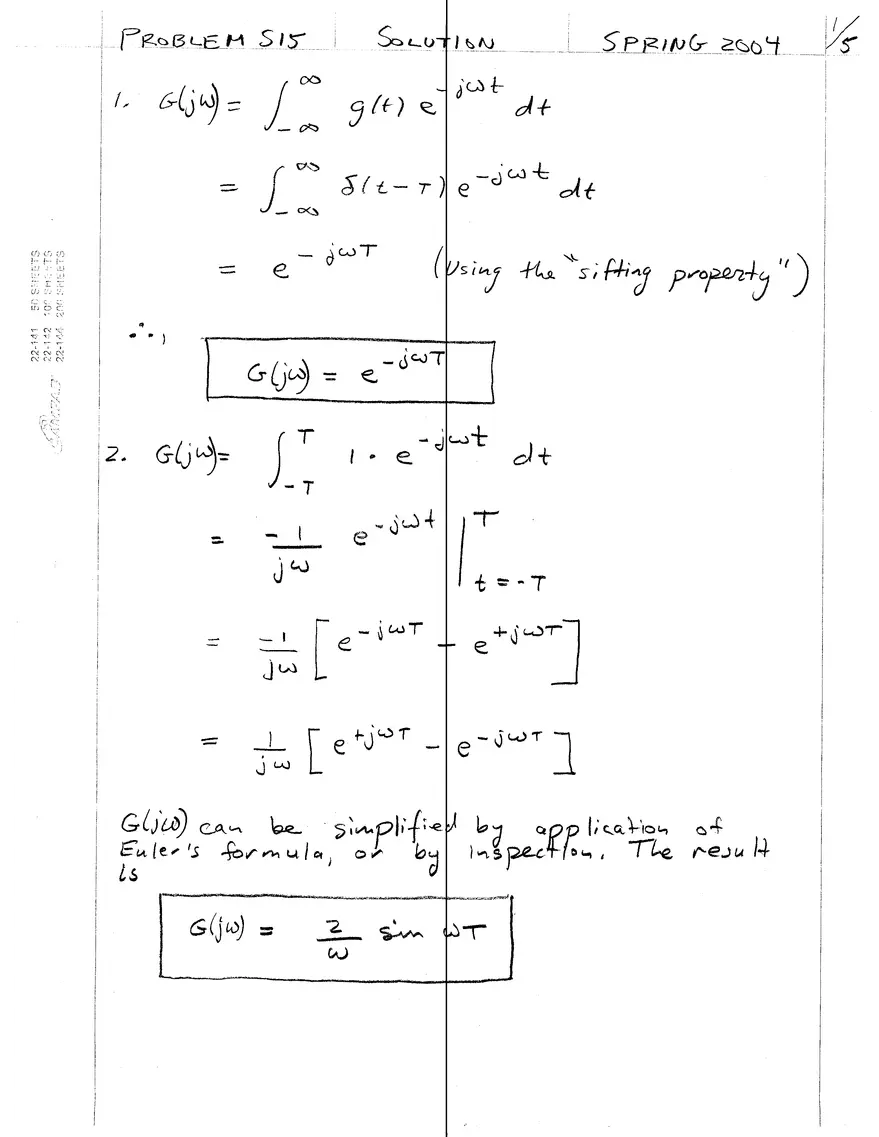 PROBLEM S15 SOLUTION SPRING 2004 1/5
1. G(jω) = ∫_{-∞}^{∞} g(t) e^{-jωt} dt
= ∫_{-∞}^{∞} δ(t-T) e^{-jωt} dt
= e^{-jωT} (Using the "sifting property")
∴,
G(jω) = e^{-jωT}
2. G(jω) = ∫_{-T}^{T} 1 · e^{-jωt} dt
= -1/jω e^{-jωt} |_{t=-T}^{T}
= -1/jω [e^{-jωT} - e^{+jωT}]
= 1/jω [e^{+jωT} - e^{-jωT}]
G(jω) can be simplified by application of
Euler's formula, or by inspection. The result
is
G(jω) = 2/ω sin ωT
22-141 50 SHEETS
22-142 100 SHEETS
22-144 200 SHEETS